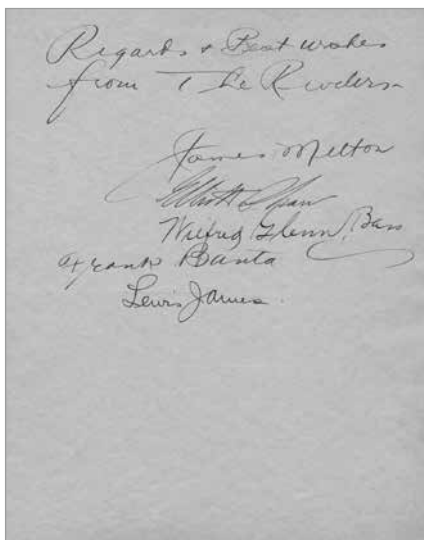 Regards & Best wishes
from The Revelers
James Melton
Elliott Shaw
Wilfred Glenn, Bass
Frank Banta
Lewis James.